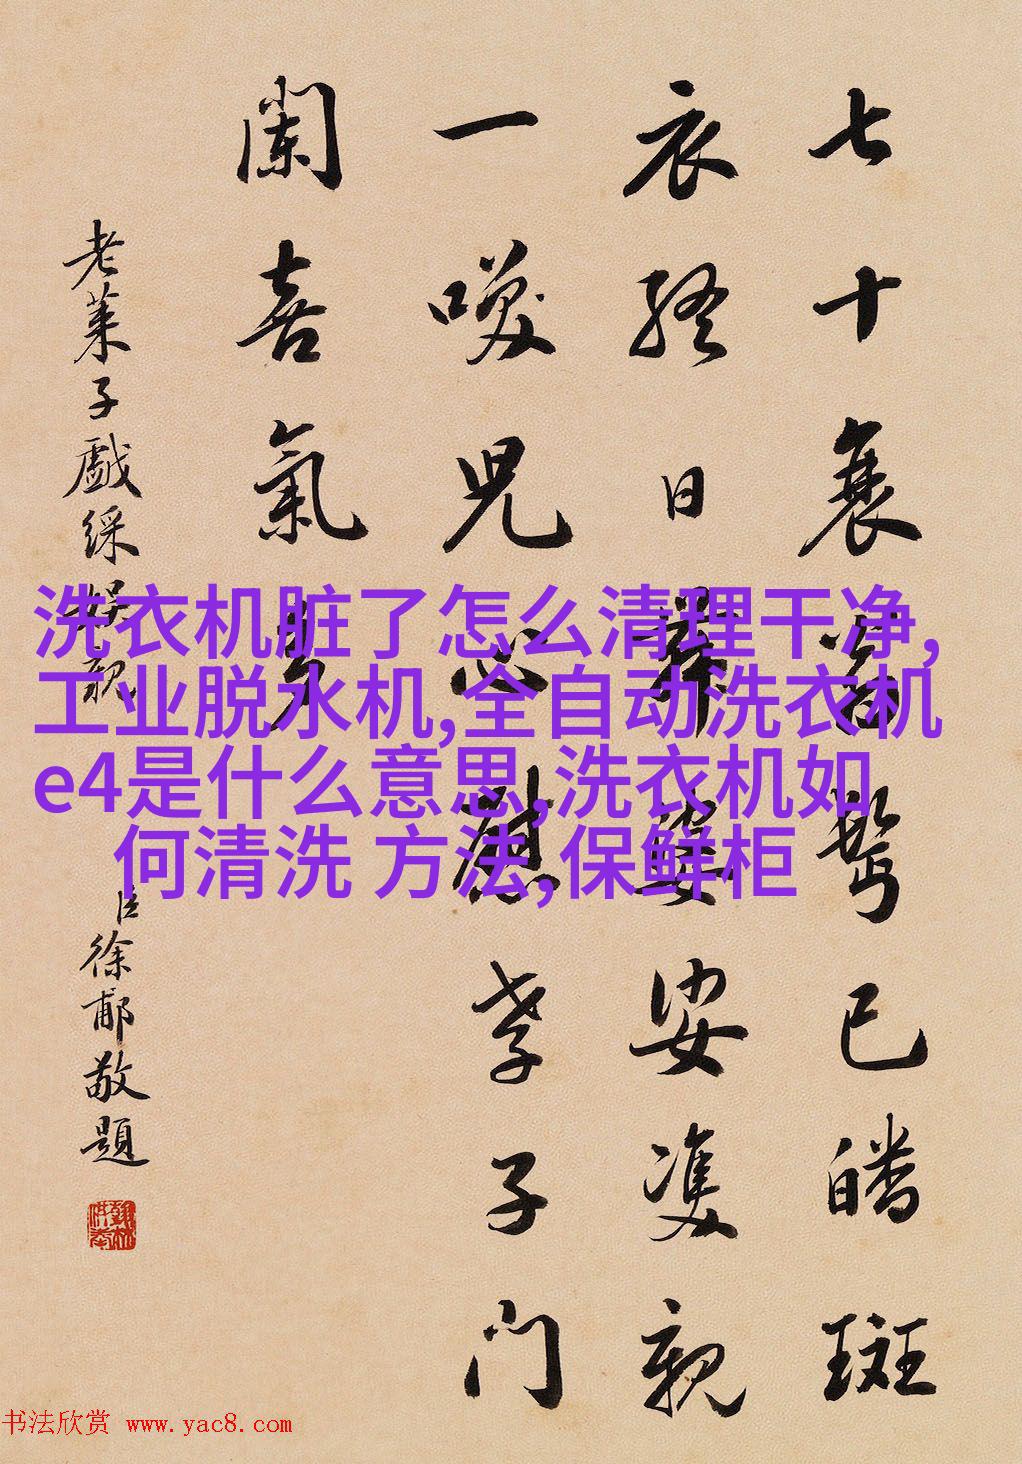 七十衰容鬢已皤斑
衣終日舞婆娑雙親
一咲兒心慰孝子門
闌喜氣多
老萊子戲綵娛親
臣徐郙敬題
洗衣机脏了怎么清理干净,
工业脱水机,全自动洗衣机
e4是什么意思,洗衣机如
何清洗 方法,保鲜柜
书法欣赏 www.yac8.com